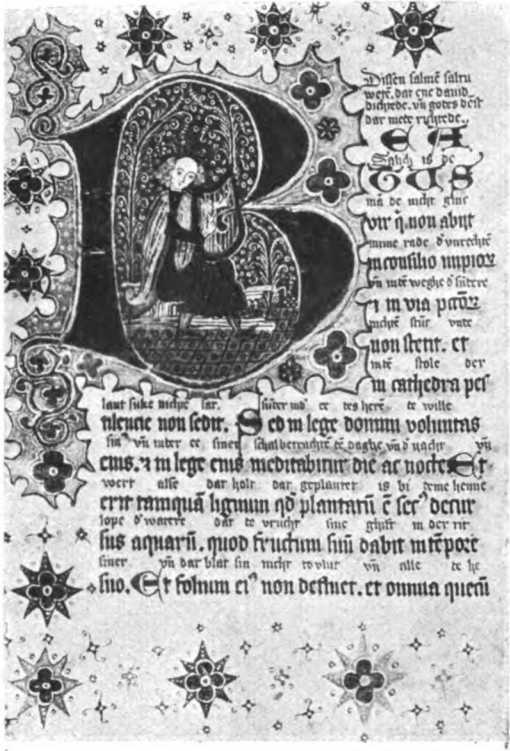 B
Dissen salmē
were. dar ene dauid
dichtede. vn̄ godes
dar mete
E A
Salich is de
TUS
mā de nicht
vir q̄. non abijt
inme rade d' vnrechtē
in consilio impioꝝ
vn̄ inte weghe d' sūdere
⁊ in via pctōꝝ
nicht stūt vnte
non stetit. et
inte stole der
in cathedra pes
nicht sat. sūder ee te wille
tilencie non sedit. Sed in lege domini voluntas
sin vn̄ inter ee siner schal betrachtē te daghe vn̄ d' nacht vn̄
eius. ⁊ in lege eius meditabitur die ac nocte. Et
wert alse dar holt dar geplantet is bi teme henne
erit tamquā lignum qd plantatū ē sec' decur
lope d' watere dar te vrucht sine ghift in der tit
sus aquarū. quod fructum suū dabit in tēpore
siner vn̄ dar blat sin nicht to vlut vn̄ alle te
suo. Et folium ei' non defluet. et omnia quecū